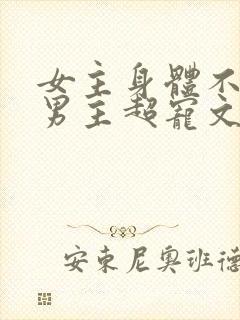 女主身體不
男主超寵文
安東尼奧班德